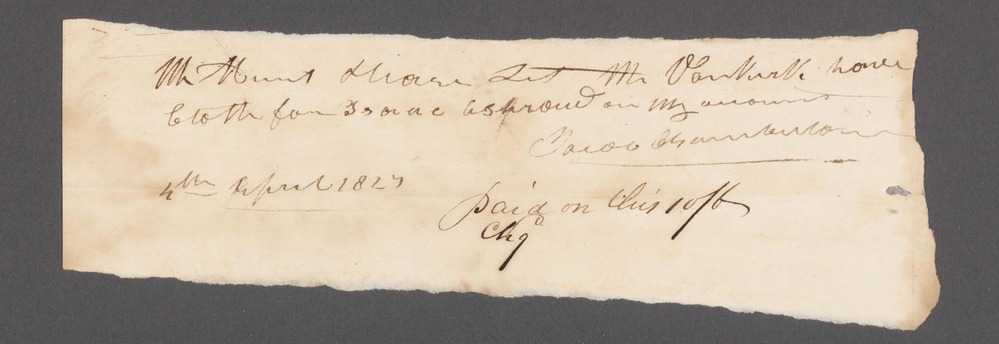 Mr Hunt Please Let Mr Vankirk have
Cloth for Isaac a shroud on my account
Isaac Chamberlain
4th April 1827
Paid on this 10/6
Chgd